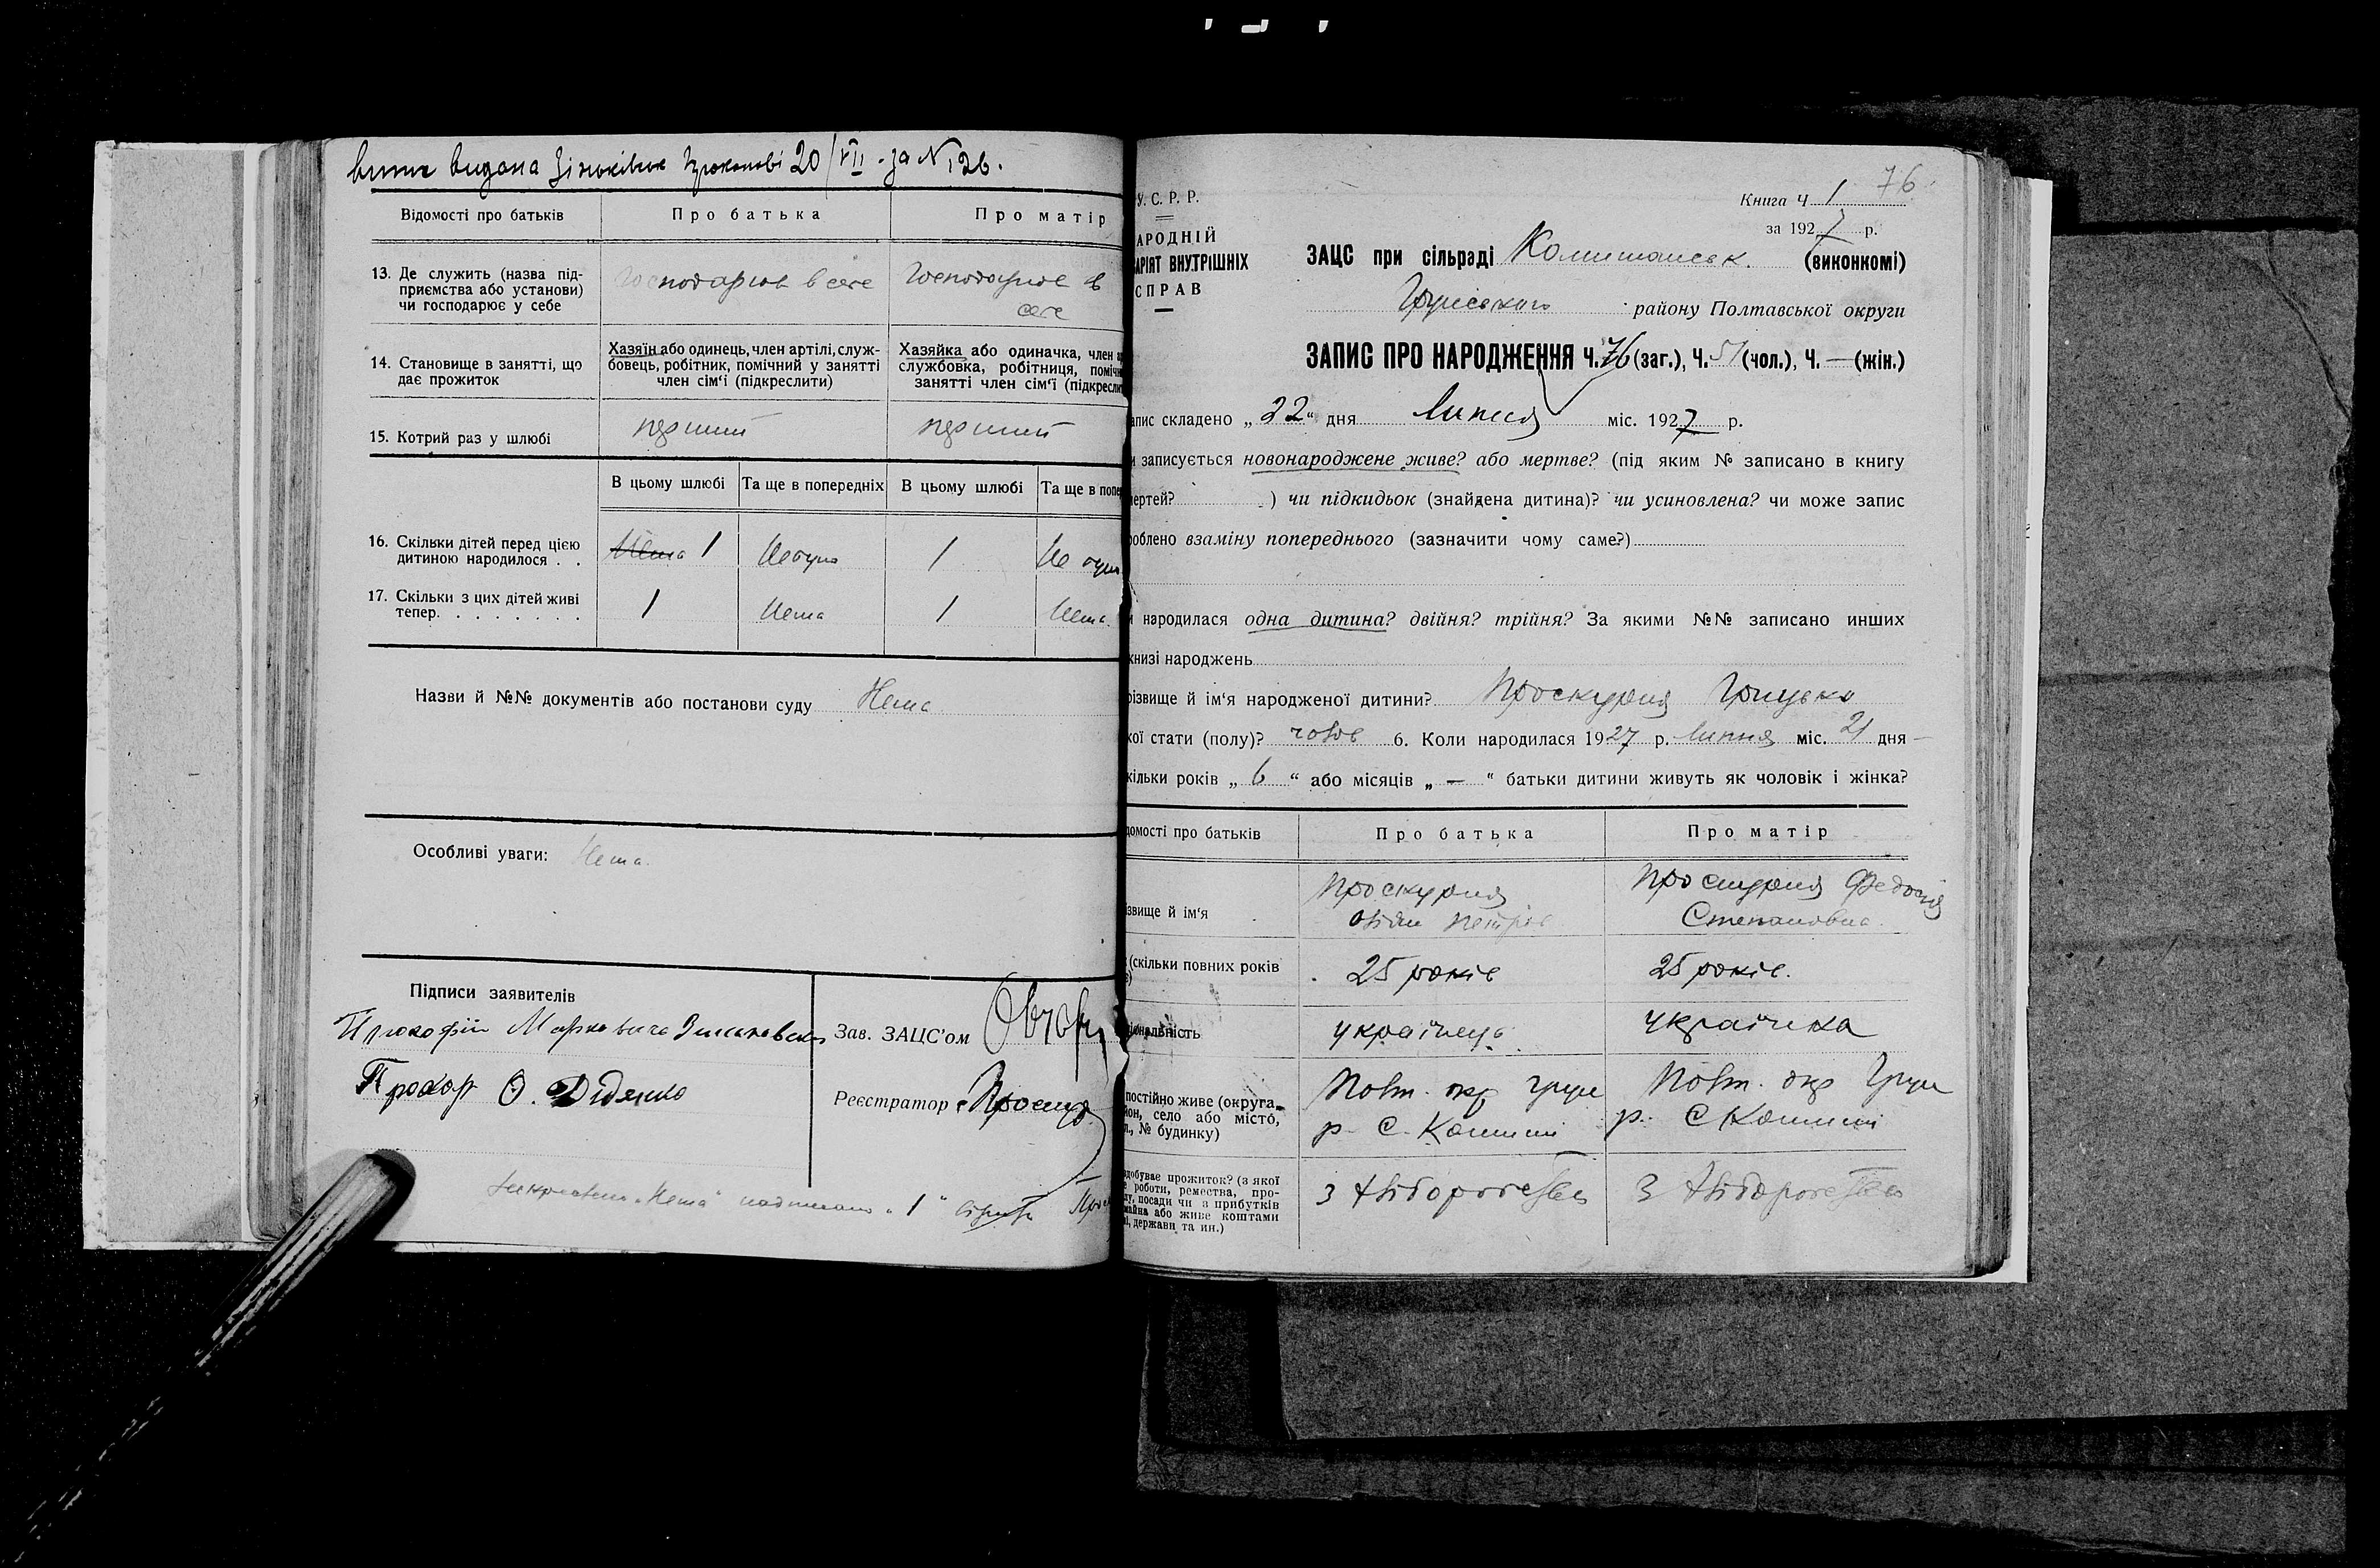 видана 20/VII - за N 126.
Відомості про батьків
Про батька
Про матір
13. Де служить (назва під-
приємства або установи)
чи господарює у себе
господарює в себе
Господарює в
себе
14. Становище в занятті, що
дає прожиток
Хазяїн або одинець, член артілі, служ-
бовець, робітник, помічний у занятті
член сім'ї (підкреслити)
Хазяйка або одиначка, член
службовка, робітниця,
занятті член сім'ї
15. Котрий раз у шлюбі
перший
перший
В цьому шлюбі
Та ще в попередніх
В цьому шлюбі
Та ще в
16. Скільки дітей перед цією
дитиною народилося . .
Нема 1
Не було
1
Не було
17. Скільки з цих дітей живі
тепер. . . . . . . .
1
Нема
1
Нема
Назви й №№ документів або постанови суду Нема
Особливі уваги: Нема
Підписи заявителів
Маркович
Прохор О. Діденко
Зав. ЗАЦС'ом
Реєстратор
"Нема" надписано "1"
76
У. С. Р. Р.
АРОДНІЙ
АРІЯТ ВНУТРІШНІХ
СПРАВ
Книга Ч 1
за 1927 р.
ЗАЦС при сільраді Комишанськ. (виконкомі)
Груньського району Полтавської округи
ЗАПИС ПРО НАРОДЖЕННЯ Ч. 76 (заг.), Ч. 51 (чол.), Ч. — (жін.)
апис складено „22“ дня Липня міс. 1927 р.
и записується новонароджене живе? або мертве? (під яким № записано в книгу
мертей? ) чи підкидьок (знайдена дитина)? чи усиновлена? чи може запис
роблено взаміну попереднього (зазначити чому саме?)
и народилася одна дитина? двійня? трійня? За якими №№ записано инших
книзі народжень
різвище й ім'я народженої дитини? Проскурня Грицько
кої стати (полу)? чолов 6. Коли народилася 1927 р. Липня міс. 21 дня
кільки років „6“ або місяців „—“ батьки дитини живуть як чоловік і жінка?
домості про батьків
Про батька
Про матір
ізвище й ім'я
Проскурня
Петров
Проскурня Федосія
Степановна
(скільки повних років
25 років
25 років.
ціональність
українець
українка
постійно живе (округа,
йон, село або місто,
л., № будинку)
Полт. окр Грун
р. С. Комиші
Полт. окр Грун
р. С Комиші
здобуває прожиток? (з якої
роботи, ремества, про-
у, посади чи з прибутків
майна або живе коштами
і, держави та ин.)
З хліборобства
З хліборобства